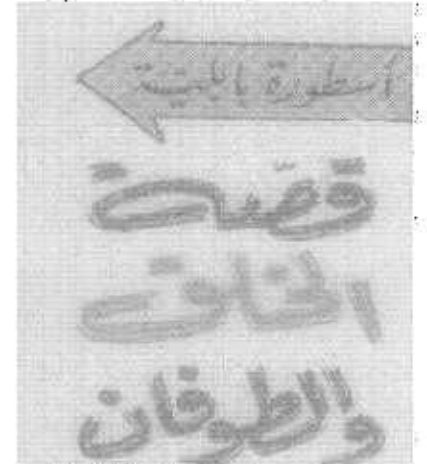 أسطورة بابلية
قصة
الخلق
والطوفان